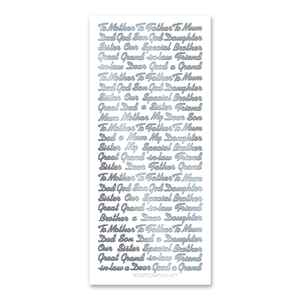 To Mother To Father To Mum
Dad God Son Dad Daughter
Sister Our Special Brother
Great Grand Sister Friend
in-law a Dear Good a Grand
To Mother To Father To Mum
Dad God Son God Daughter
Sister Our Special Brother
Great Dad a Sister Friend
Mum Mother My Dear Son
To Mother To Father To Mum
Dad God Son Dad Daughter
Sister My Special Friend
Great Grand-in-law a Friend
To Mother To Father To Mum
Dad God Son Dad Daughter
Sister Our Special Brother
Great Grand-in-law Friend
Brother a Dear Daughter
To Mother To Father To Mum
Dad Son Dad a Daughter
Sister Our Special Brother
Great Grand-in-law Friend
in-law a Dear Good a Grand